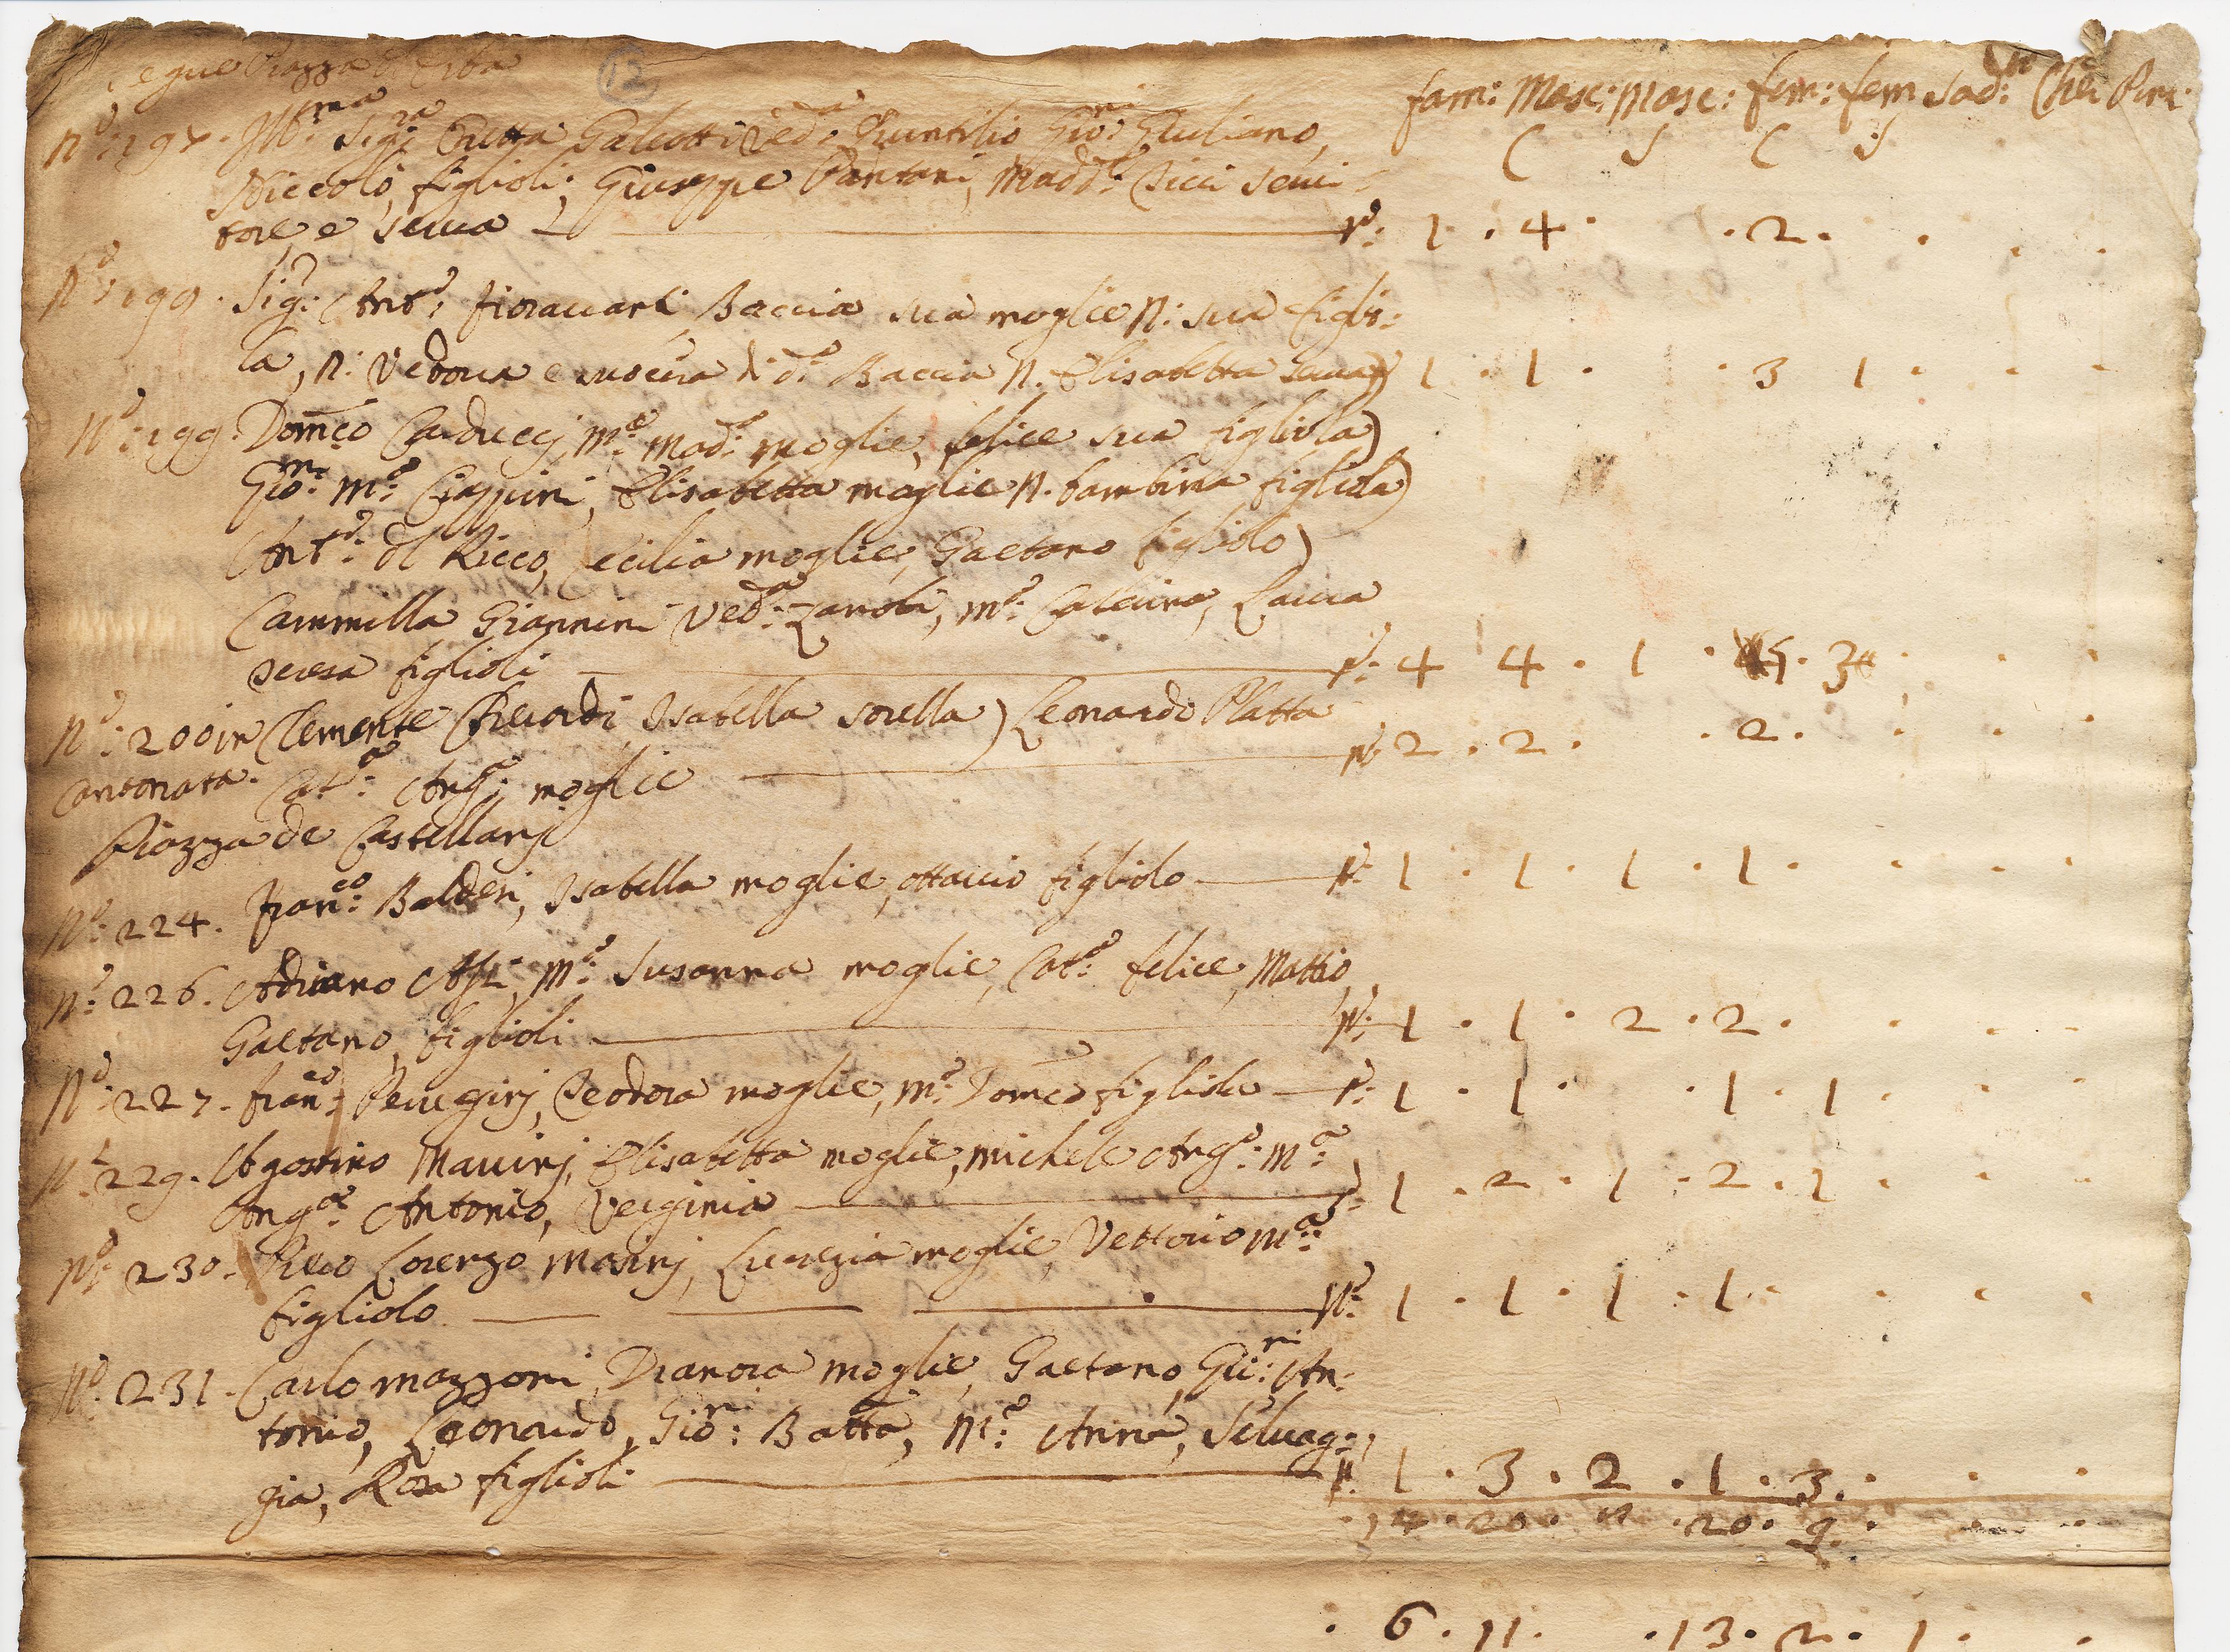 Segue Piazza d'Erba 12
fam: Masc: Masc: fem: fem Sad: Che Pre:
C S C S
N.º 197. Ill.ma Sig.ra Galeotti Ved.a Quintilio Gio:ni Giuliano,
Niccolò, figlioli, Giuseppe Pantani, Madd.a Ricci Servi-
tore, e serva N.º: 1 . 4 . . 2 . . . .
N.º 199. Sig.r Ant.º: Fioravanti Baccia sua moglie N: sua figlio:
la, N: Vedova e suocera di d.º Baccia N. Elisabetta serva) 1 . 1 . . 3 1 . . .
N.º 199. Dom.co Carducci, M.a Mad.a moglie, felice sua figliola)
Gio:ni M.a Ciappini, Elisabetta moglie N. bambina figliola)
Ant.º: del Ricco, Cecilia moglie, Gaetano figliolo)
Cammilla Giannini Ved.a Zanobi, M.a Caterina, Laura
Teresa figlioli N.º: 4 4 . 1 . 5 . 3 . . .
N.º 200 in Clemente Isabella sorella) Leonardo Platta
Cantonata. Cat.a Ang.a moglie N.º: 2 . 2 . . 2 . . . .
Piazza de Castellani
N.º 224. Fran.co Balderi, Isabella moglie, ottavio figliolo N.º: 1 . 1 . 1 . 1 . . . .
N.º 226. Adriano M.a Susanna moglie, Cat.a felice, Mattio,
Gaetano, figlioli N.º: 1 . 1 . 2 . 2 . . . .
N.º 227. fran.co Perugini, Teodora moglie, M.a Dom.ca figliola N.º: 1 . 1 . . 1 . 1 . . .
N.º 229. Agostino Mancini, Elisabetta moglie, Michele Ang.º: M.a
Ang.a Antonio, Verginia 1 . 2 . 1 . 2 . 1 . . .
N.º 230. Lorenzo Masini, Lucrezia moglie, Vettorio M.a
figliolo N.º: 1 . 1 . 1 . 1 . . . .
N.º 231. Carlo Mazzoni, Dianora moglie, Gaetano, Gio:ni An:
tonio, Leonardo, Gio:ni Batta, M.a Anna, Selvag:
gia, Rosa figlioli N.º: 1 . 3 . 2 . 1 . 3 . . .
14 . 20 . . 20 . 9 . . .
. 6 . 11 . . 13 . 2 . 1 . .